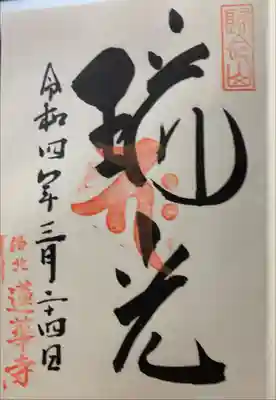 歸命山
光
令和四年三月二十四日
洛北
蓮華寺